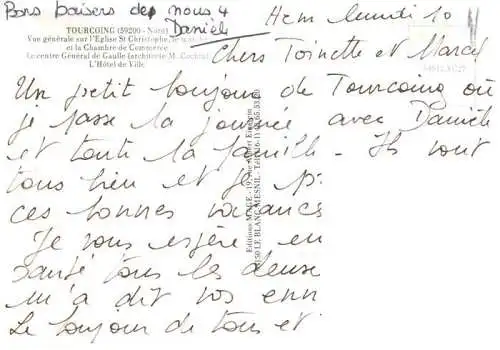 Bons baisers de nous 4
Danièle
Hem lundi 10
TOURCOING (59200 - Nord)
Vue générale sur l'Eglise St Christophe,
et la Chambre de Commerce
Le centre Général de Gaulle (architecte M.
L'Hôtel de Ville
Chers Toinette et Marcel
Un petit bonjour de Tourcoing où
je passe la journée avec Danièle
et toute la famille - Ils vont
tous bien et je
ces bonnes vacances
Je vous espère en
santé tous les deux
m'a dit vos enn
Le bonjour de tous et
Editions MAGE - 19, rue Albert Einstein
LE BLANC MESNIL - Tél.